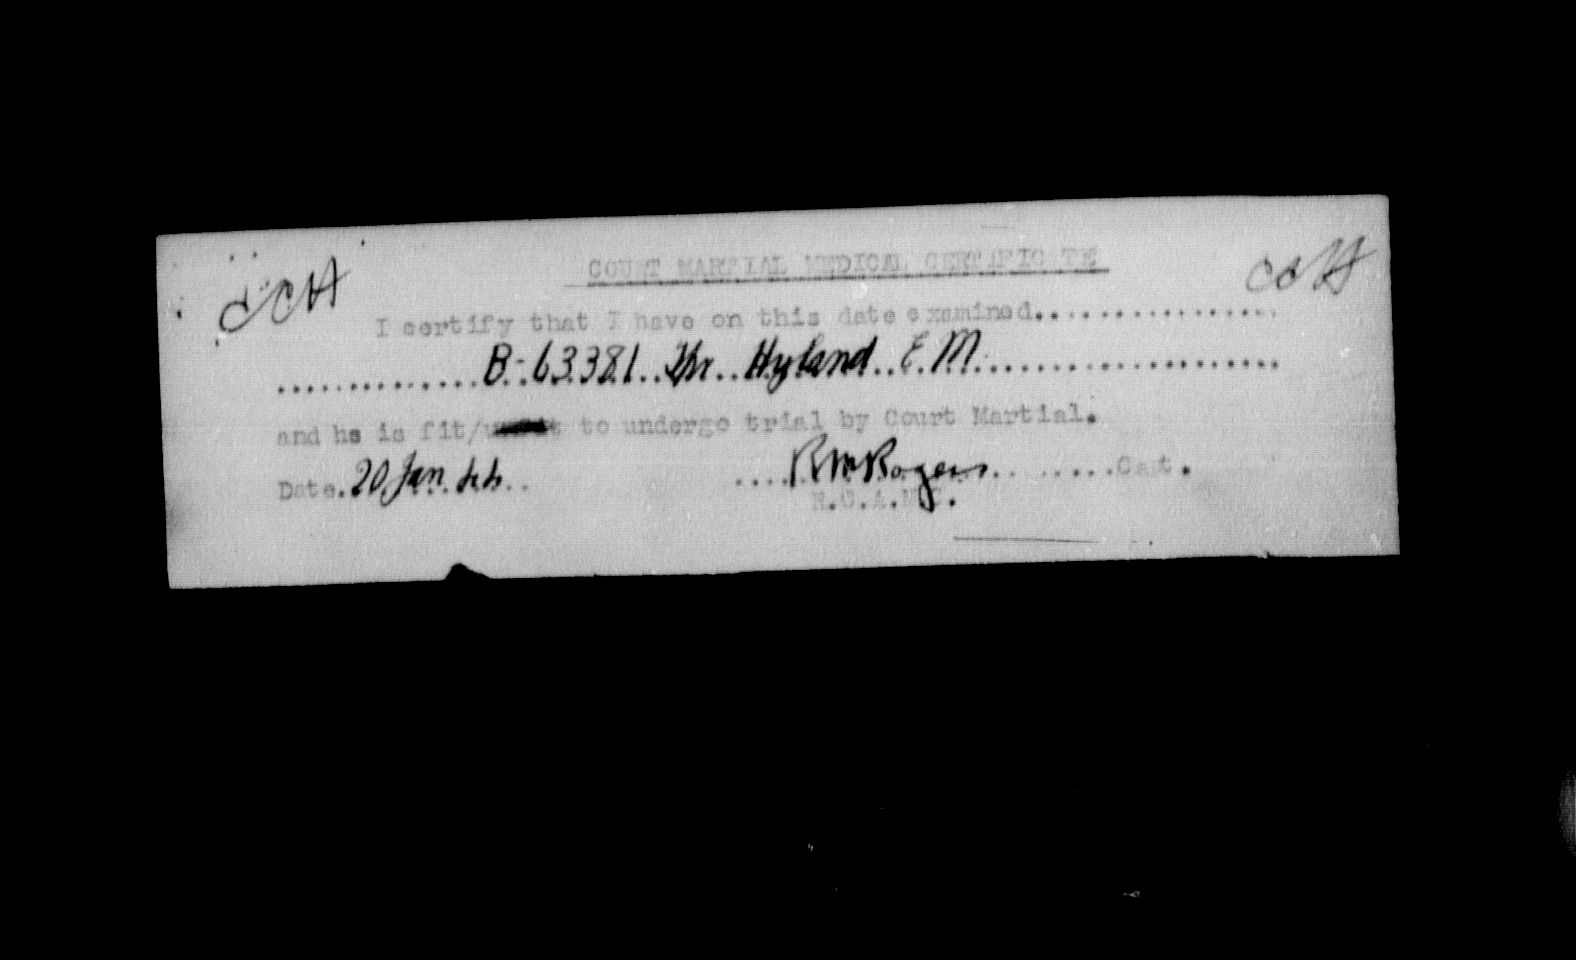 COURT MARTIAL MEDICAL CERTIFICATE
I certify that I have on this date examined................
..............B-63381..Tpr..Hyland..E.M.....................
and he is fit/unfit to undergo trial by Court Martial.
Date.20 Jan 44..
....RM Rogers.........Capt.
R.C.A.M.C.